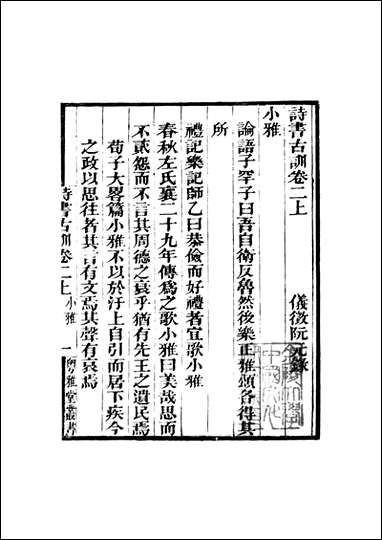 詩書古訓卷二上
儀徵阮元錄
小雅
論語子罕子曰吾自衞反魯然後樂正雅頌各得其
所
禮記樂記師乙曰恭儉而好禮者宜歌小雅
春秋左氏襄二十九年傳爲之歌小雅曰美哉思而
不貳怨而不言其周德之衰乎猶有先王之遺民焉
荀子大畧篇小雅不以於汙上自引而居下疾今
之政以思往者其言有文焉其聲有哀焉
詩書古訓卷二上 小雅 一 粤雅堂叢書